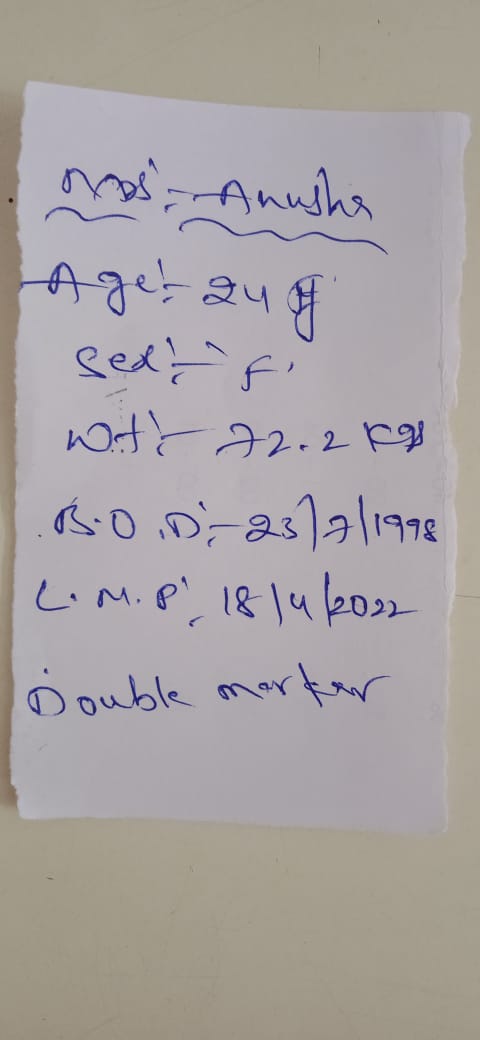 Mrs :- Anusha
Age :- 24 y
Sex :- F
Wt :- 72.2 Kgs
B.O.D :- 23/7/1998
L.M.P :- 18/4/2022
Double marker